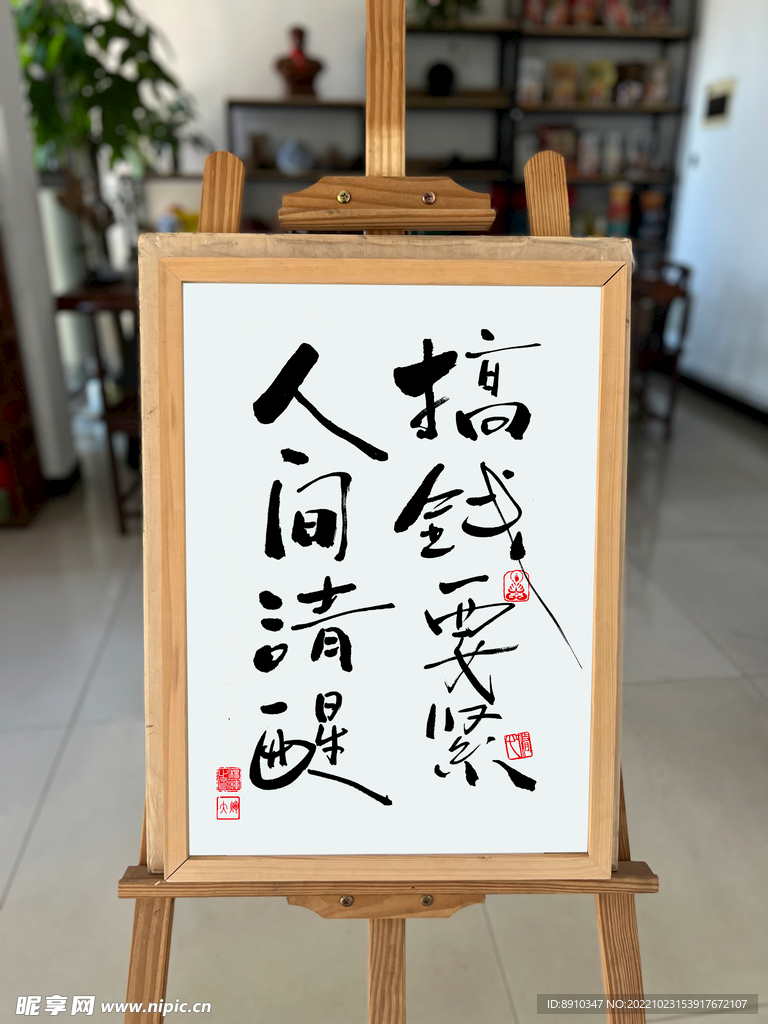 搞钱要紧
人间清醒
昵享网 www.nipic.cn
ID:8910347 NO:20221023153917672107